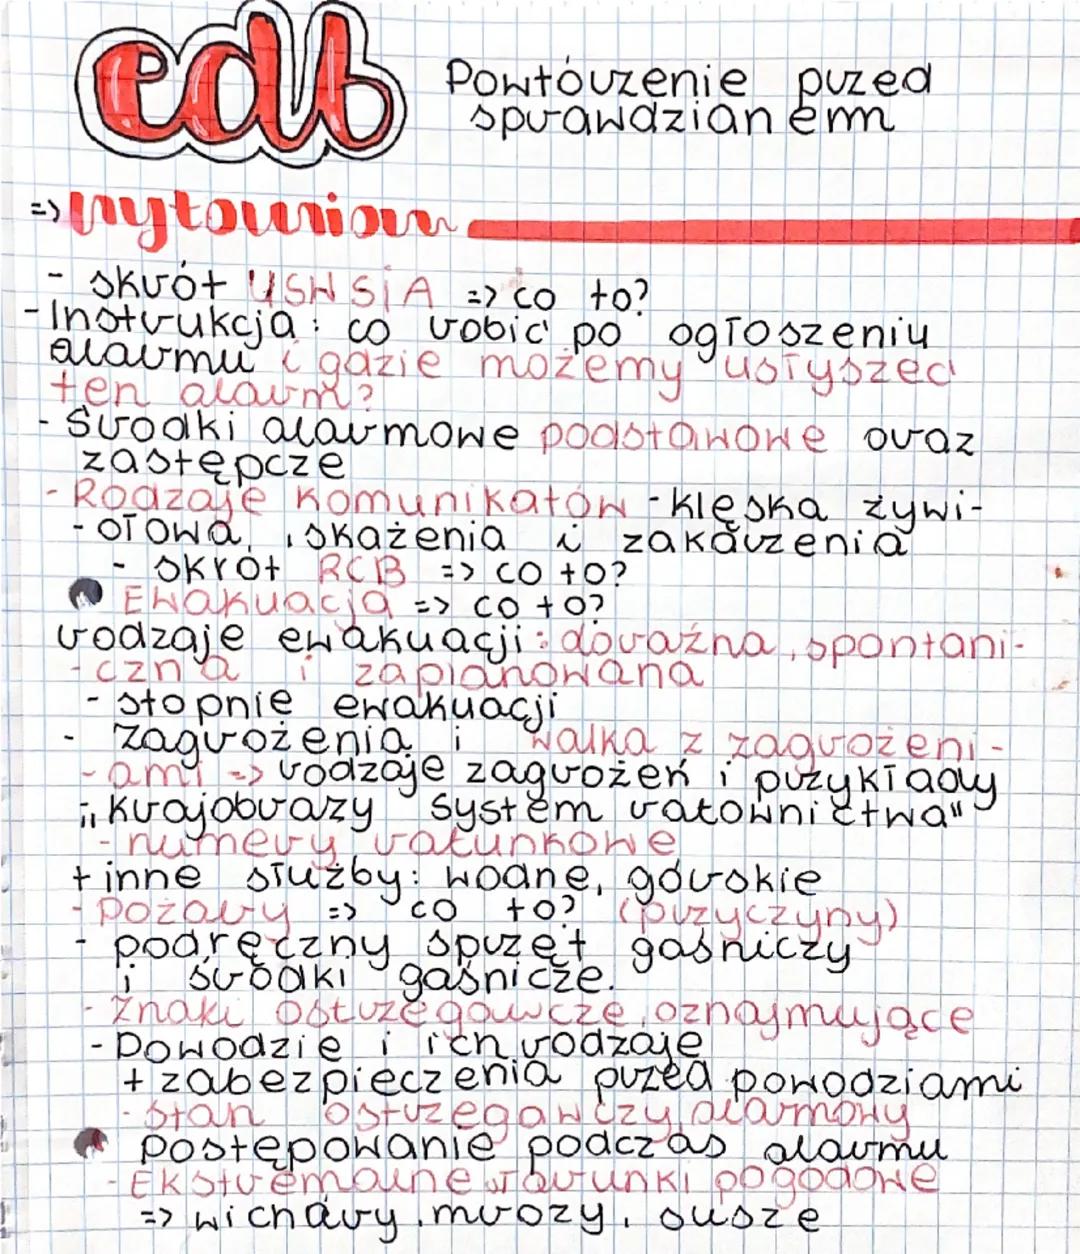 edb
Powtórzenie przed
sprawdzianem
=> 
- skrót USWSiA => co to?
- Instrukcja: co robić po ogłoszeniu
alarmu i gdzie możemy usłyszeć
ten alarm?
- Środki alarmowe podstawowe oraz
zastępcze
- Rodzaje komunikatów - klęska żywi-
- ołowa, skażenia i zakażenia
- skrót RCB => co to?
Ewakuacja => co to?
rodzaje ewakuacji: doraźna, spontani-
- czna i zaplanowana
- stopnie ewakuacji
- Zagrożenia i walka z zagrożeni-
- ami -> rodzaje zagrożeń i przykłady
"krajobrazy system ratownictwa"
- numery ratunkowe
+ inne służby: wodne, górskie
- Pożary => co to? (przyczyny)
- podręczny sprzęt gaśniczy
i środki gaśnicze.
- Znaki ostrzegawcze, oznajmujące
- Powodzie i ich rodzaje
+ zabezpieczenia przed powodziami
- Stan ostrzegawczy, alarmowy
Postępowanie podczas alarmu
- Ekstremalne warunki pogodowe
=> wichury, mrozy, susze